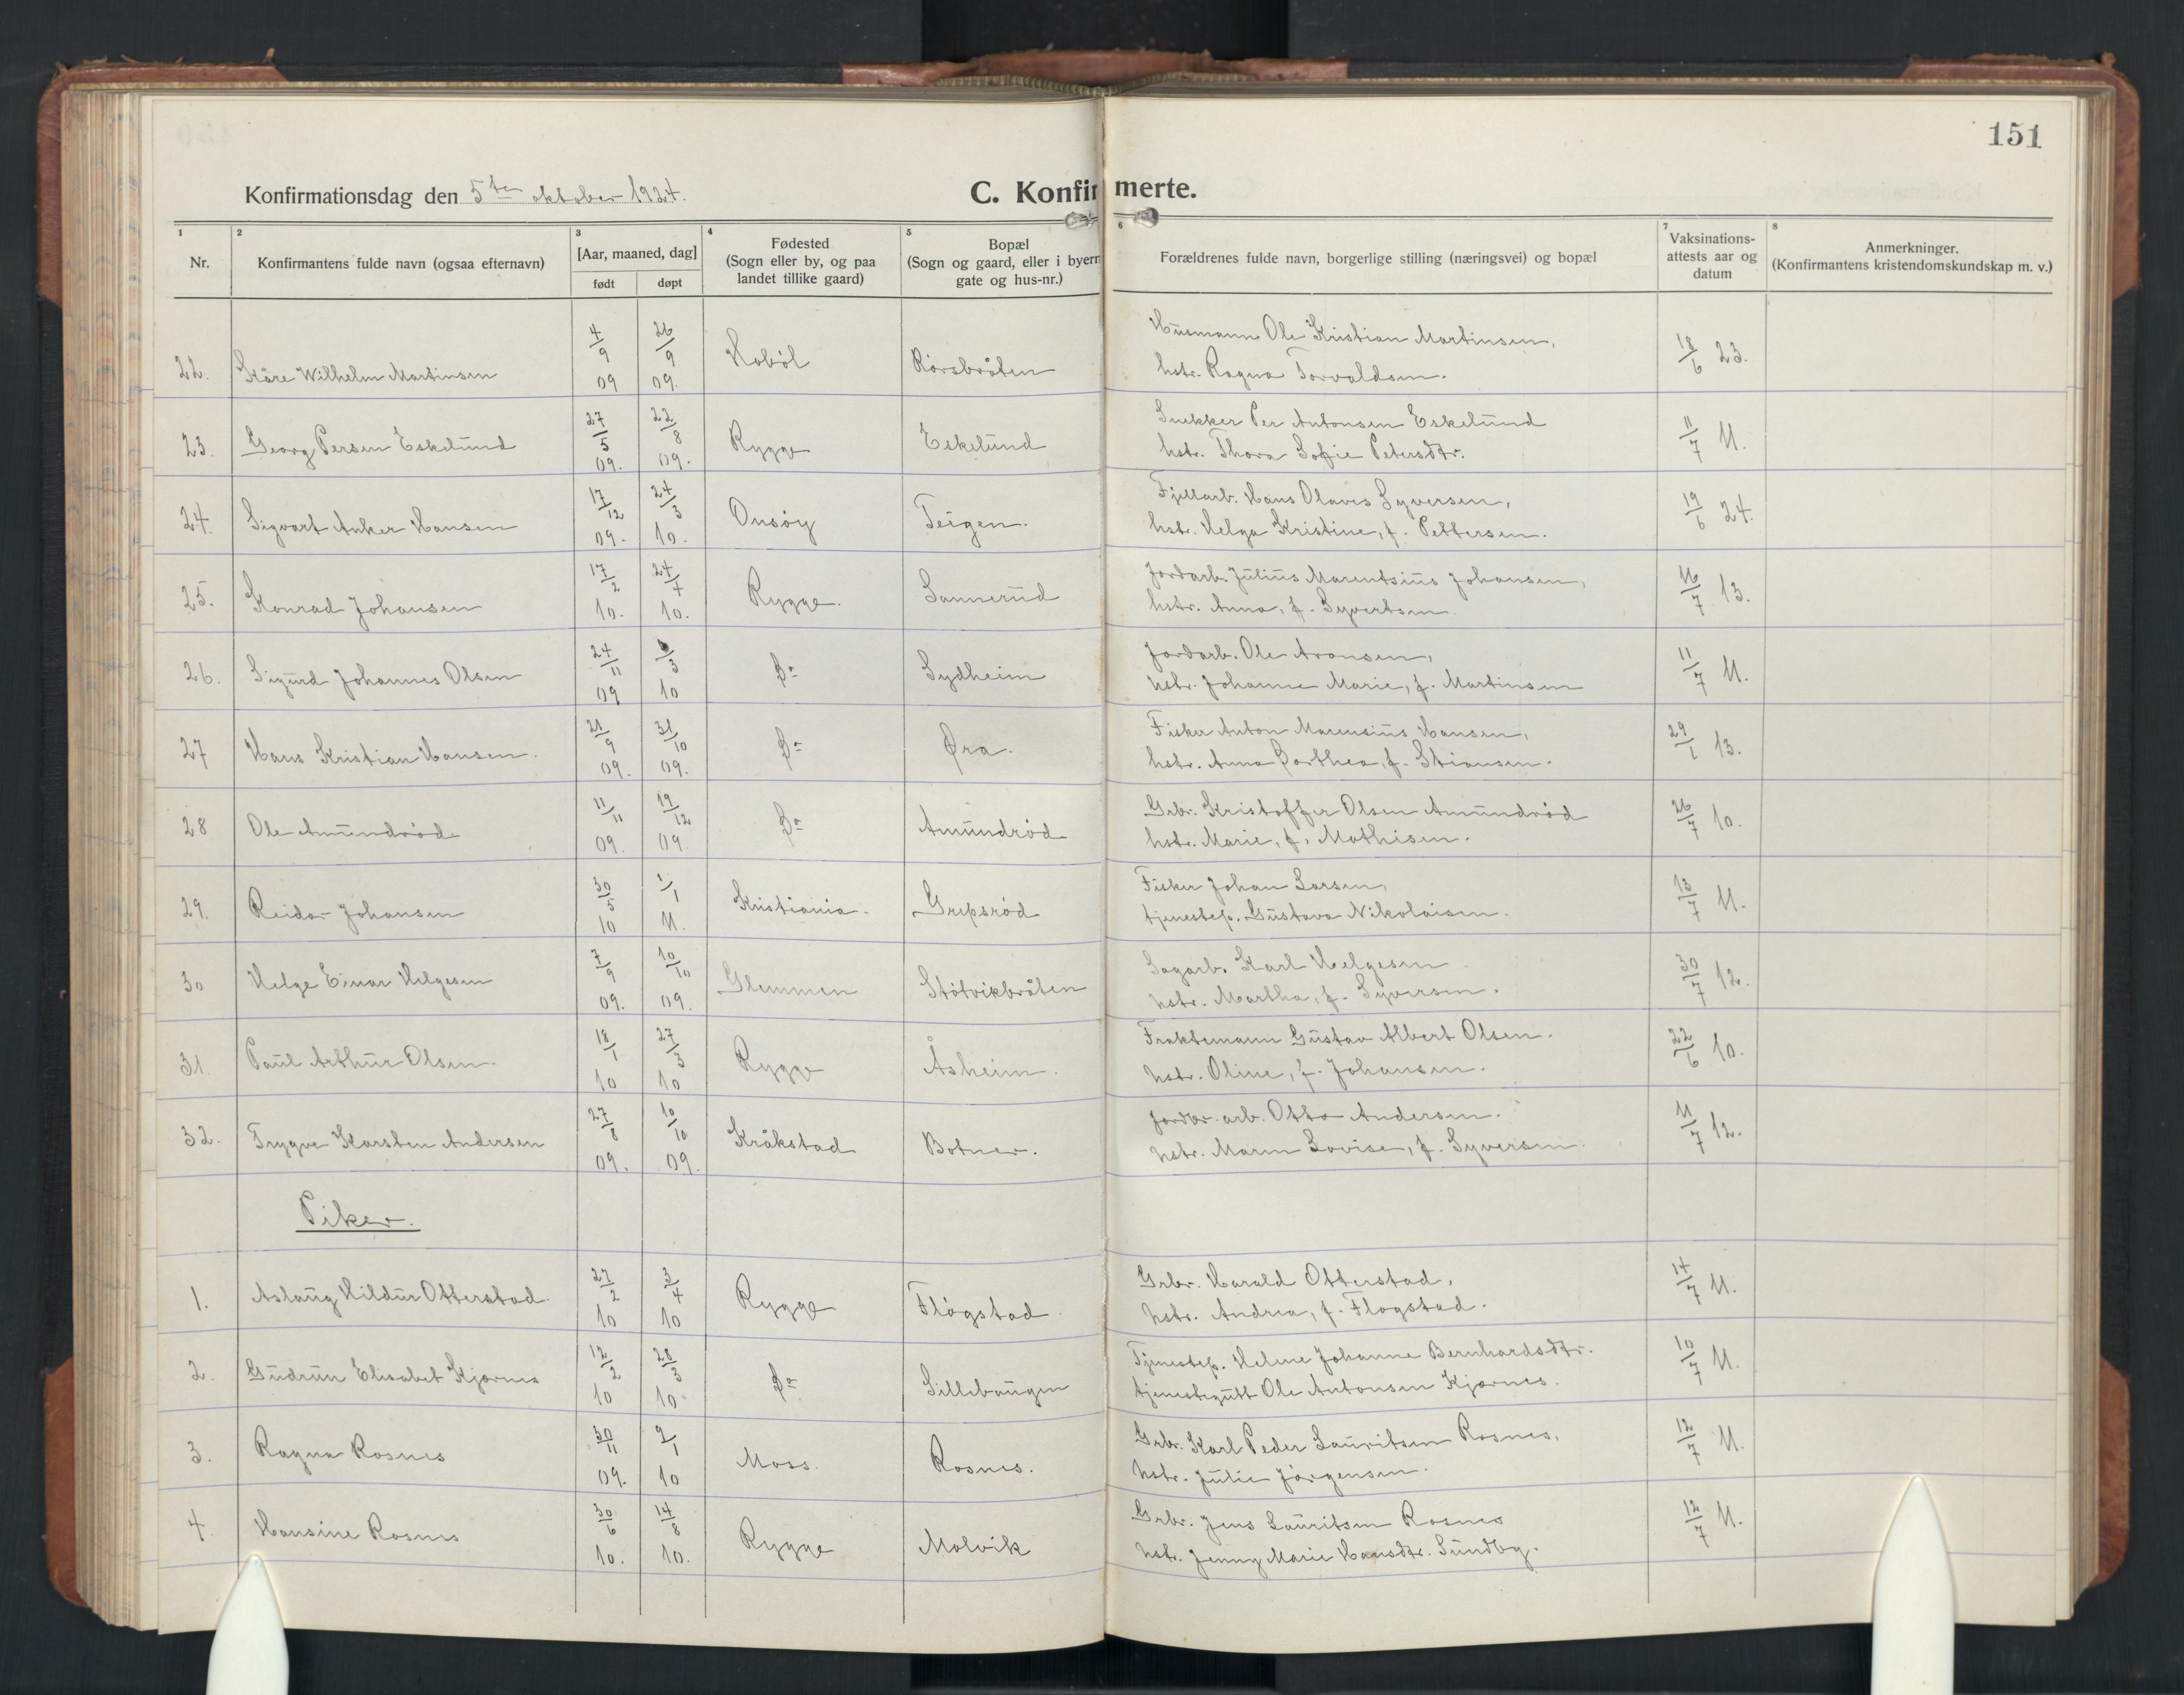 151
Konfirmationsdag den 5te oktober 1924.
C. Konfirmerte.
1 2 3 4 5 6 7 8
Nr.
Konfirmantens fulde navn (ogsaa efternavn)
[Aar, maaned, dag]
født døpt
Fødested
(Sogn eller by, og paa
landet tillike gaard)
Bopæl
(Sogn og gaard, eller i byern
gate og hus-nr.)
Forældrenes fulde navn, borgerlige stilling (næringsvei) og bopæl
Vaksinations-
attests aar og
datum
Anmerkninger.
(Konfirmantens kristendomskundskap m. v.)
22. Kåre Wilhelm Martinsen 4/9 09 26/9 09. Hobøl Rørsbråten
Husmann Ole Kristian Martinsen,
hstr. Ragna Torvaldsen. 18/6 23.
23. Georg Persen Eskelund 27/5 09. 22/8 09. Rygge Eskelund
Snekker Per Antonsen Eskelund
hstr. Thora Sofie Petersdtr. 11/7 11.
24. Sigvart Anker Hansen 17/12 09. 24/3 10. Onsøy Teigen.
Fjellarb. Hans Olaves Syversen,
hstr. Helga Kristine, f. Pettersen. 19/6 24.
25. Konrad Johansen 17/2 10. 24/4 10. Rygge. Sannerud
Jordarb. Julius Marentsius Johansen,
hstr. Anna, f. Syvertsen. 16/7 13.
26. Sigurd Johannes Olsen 24/11 09 /3 10 Do Sydheim
Jordarb. Ole Aronsen,
hstr. Johanne Marie, f. Martinsen 11/7 11.
27 Hans Kristian Hansen. 21/9 09. 31/10 09. Do Øra.
Fisker Anton Marensius Hansen,
hstr. Anna Dorthea, f. Stiansen. 29/1 13.
28 Ole Amundrød 11/11 09. 19/12 09. Do Amundrød
Grbr. Kristoffer Olsen Amundrød
hstr. Marie, f. Mathisen. 26/7 10.
29. Reidar Johansen 30/5 10 1/1 11. Kristiania. Gripsrød
Fisker Johan Larsen,
tjenestep. Gustava Nikolaisen. 13/7 11.
30 Helge Einar Helgesen 7/9 09. 10/10 09. Glemmen Støtvikbråten
Sagarb. Karl Helgesen
hstr. Martha, f. Syversen. 30/7 12.
31. Paul Arthur Olsen. 18/1 10 27/3 10 Rygge Åsheim.
Fraktemann Gustav Albert Olsen.
hstr. Oline, f. Johansen. 22/6 10.
32. Trygve Karsten Andersen 27/8 09. 10/10 09. Kråkstad Botner.
Jordbr. arb. Otto Andersen.
hstr. Maren Lovise, f. Syversen. 11/7 12.
Piker.
1. Aslaug Hildur Otterstad. 27/2 10 3/4 10 Rygge Fløgstad
Grbr. Harald Otterstad,
hstr. Andrea, f. Flogstad. 14/7 11.
2. Gudrun Elisabet Kjærnes 12/2 10 28/3 10. Do Sillebaugen
Tjenestep. Helene Johanne Bernhardsdtr.
tjenestegutt Ole Antonsen Kjærnes. 10/7 11.
3. Ragna Rosnes 30/11 09. 9/1 10 Moss. Rosnes.
Grbr. Karl Peder Lauritsen Rosnes,
hstr. Julie Jørgensen. 12/7 11.
4. Hansine Rosnes 30/6 10. 14/8 10. Rygge Molvik
Grbr. Jens Lauritsen Rosnes
hstr. Jenny Marie Hansdtr. Sundby. 12/7 11.